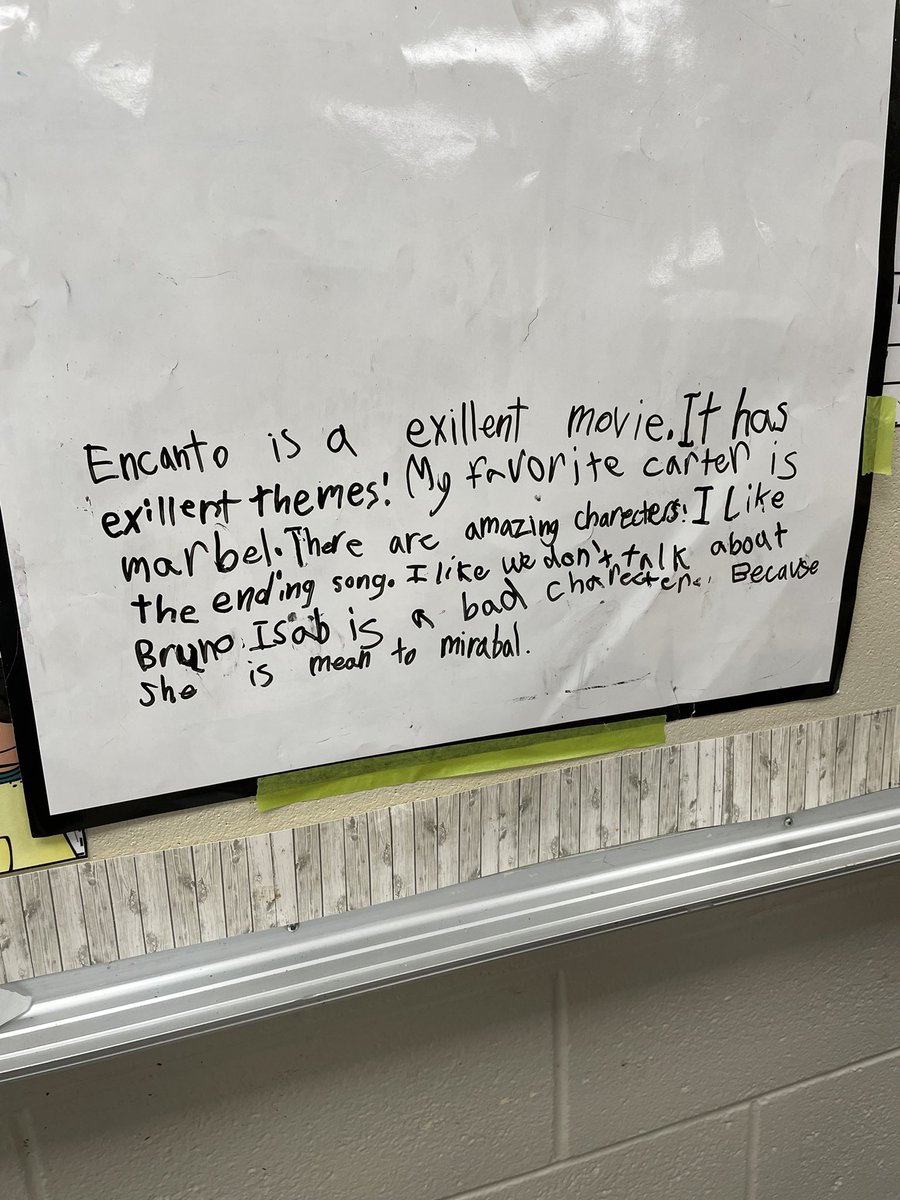 Encanto is a exillent movie. It has
exillent themes! My favorite carter is
marbel. There are amazing charecters! I Like
the ending song. I like we don't talk about
Bruno. Isab is a bad charecter. Because
she is mean to mirabal.